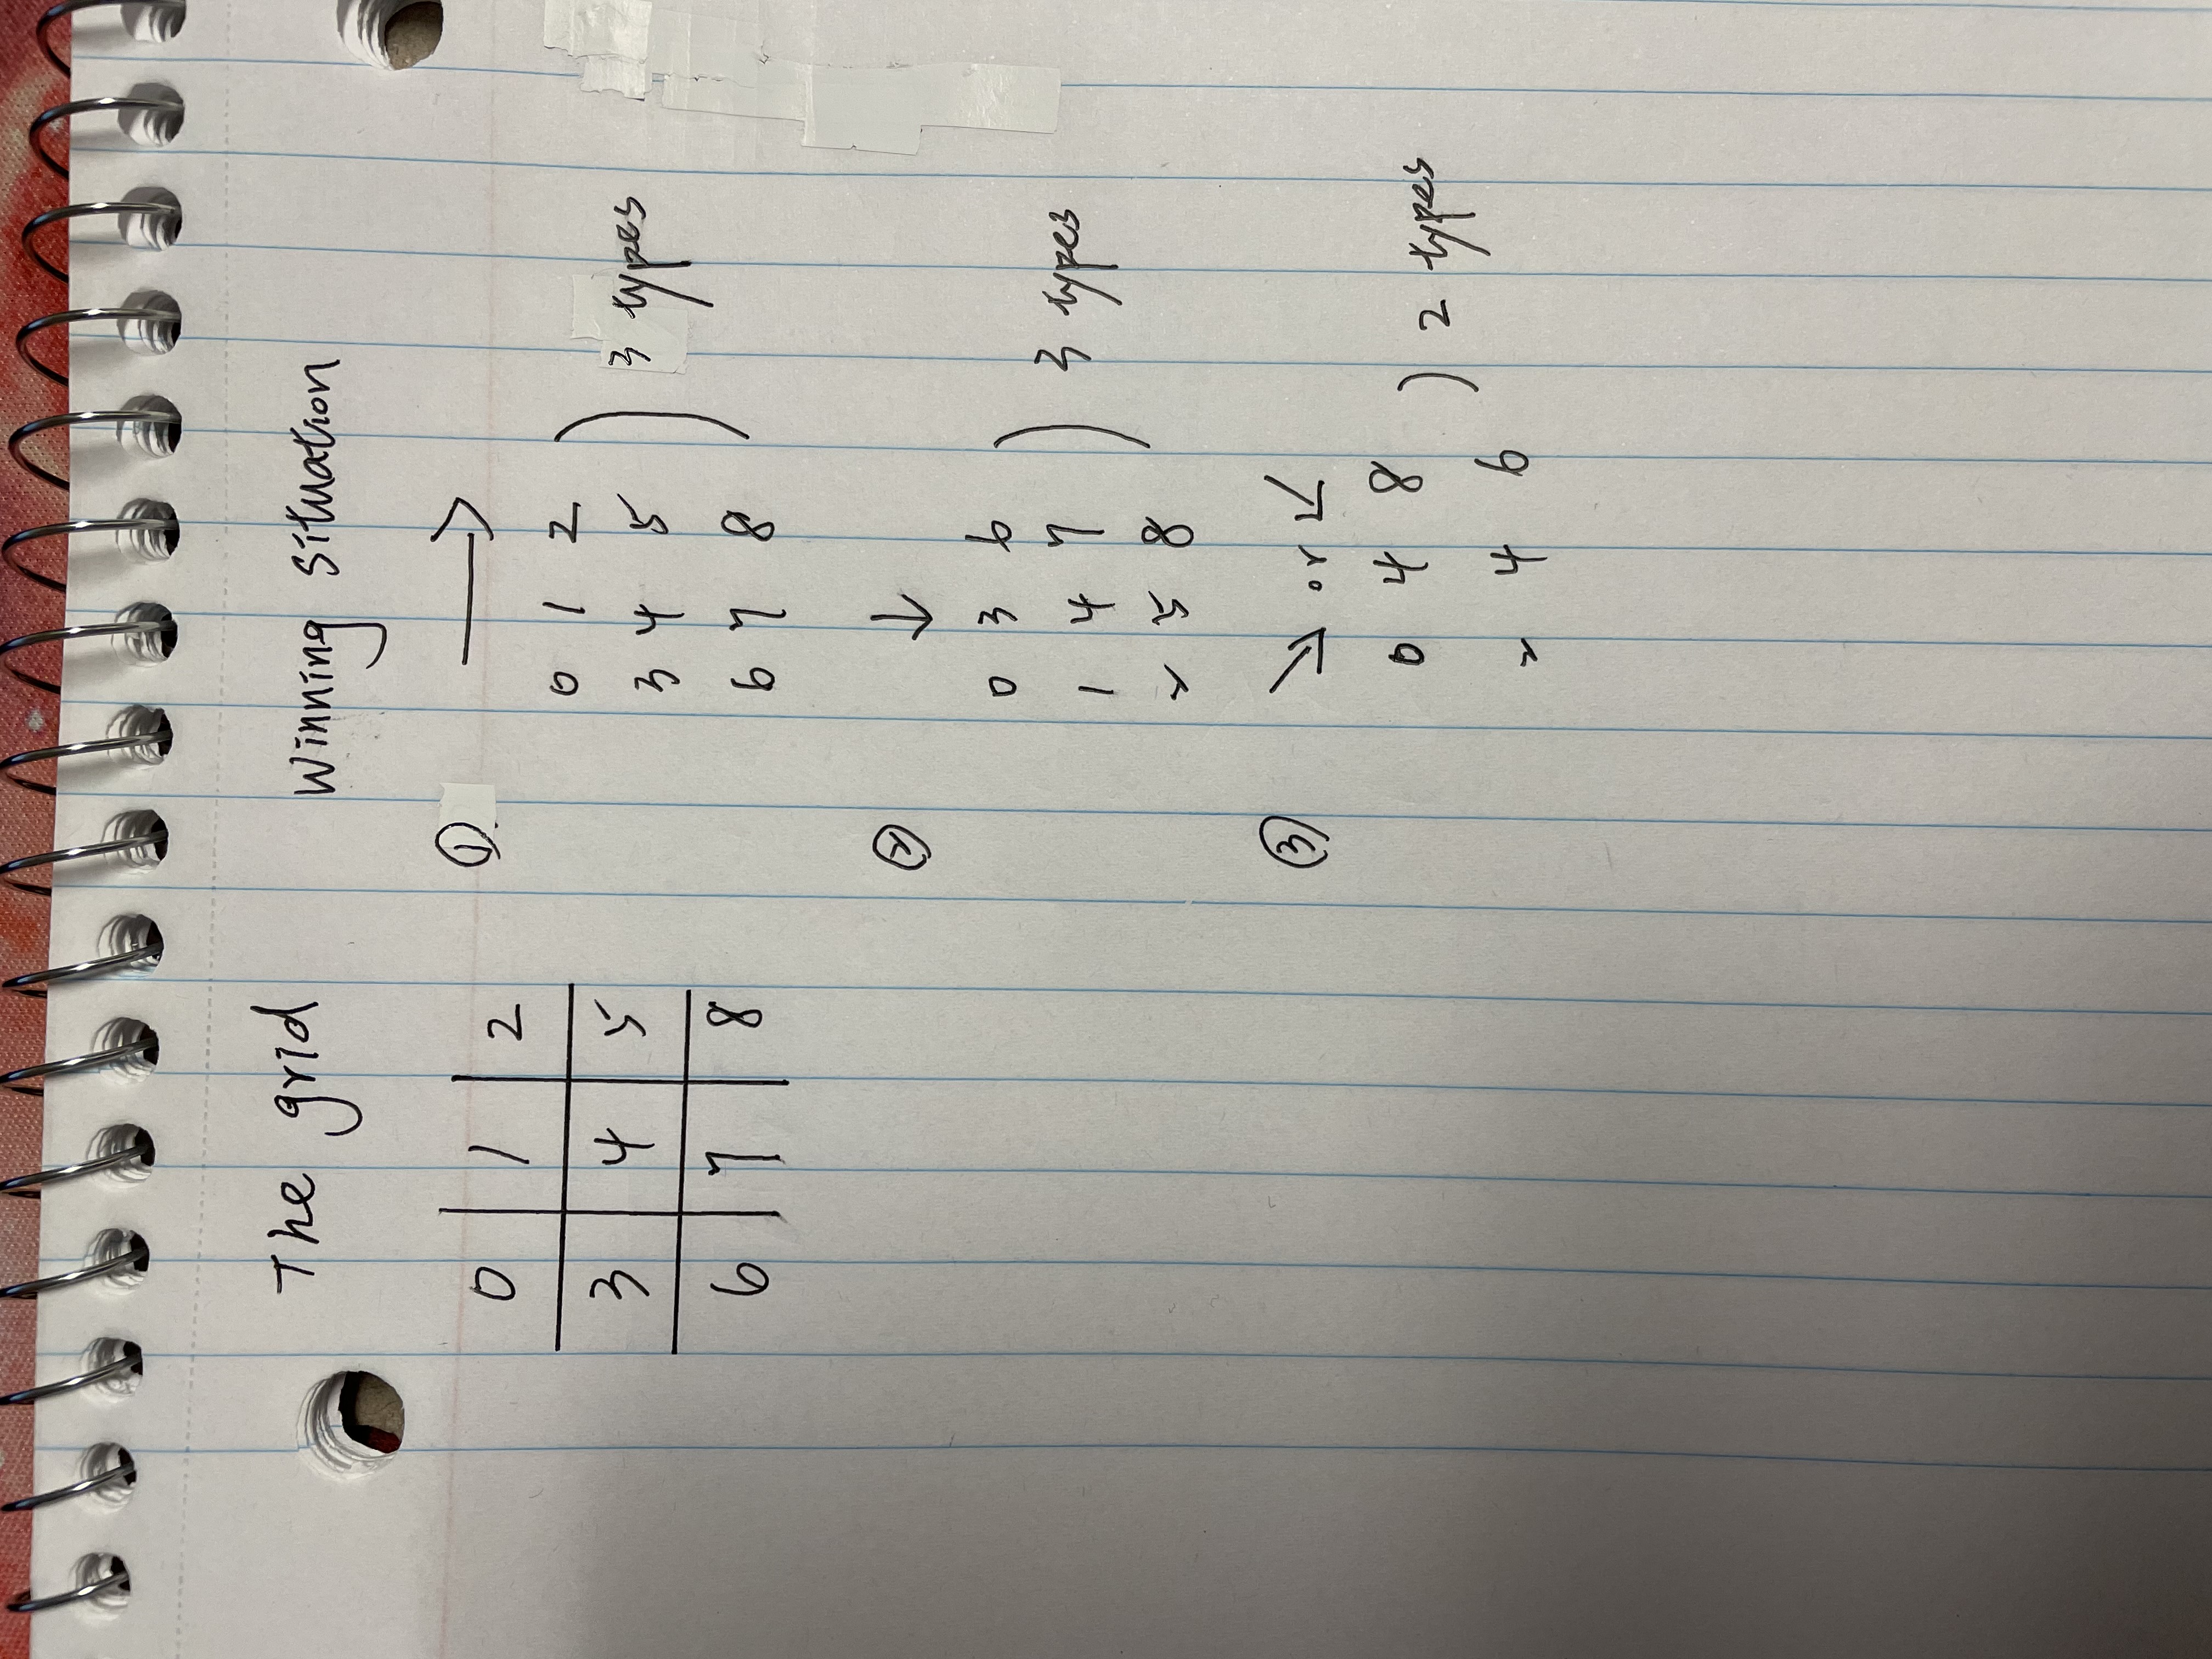 The grid
0 1 2
3 4 5
6 7 8
Winning situation
① →
0 1 2
3 4 5
6 7 8
3 types
② ↓
0 3 6
1 4 7
2 5 8
3 types
③ ↘ or ↙
0 4 8
2 4 6
2 types